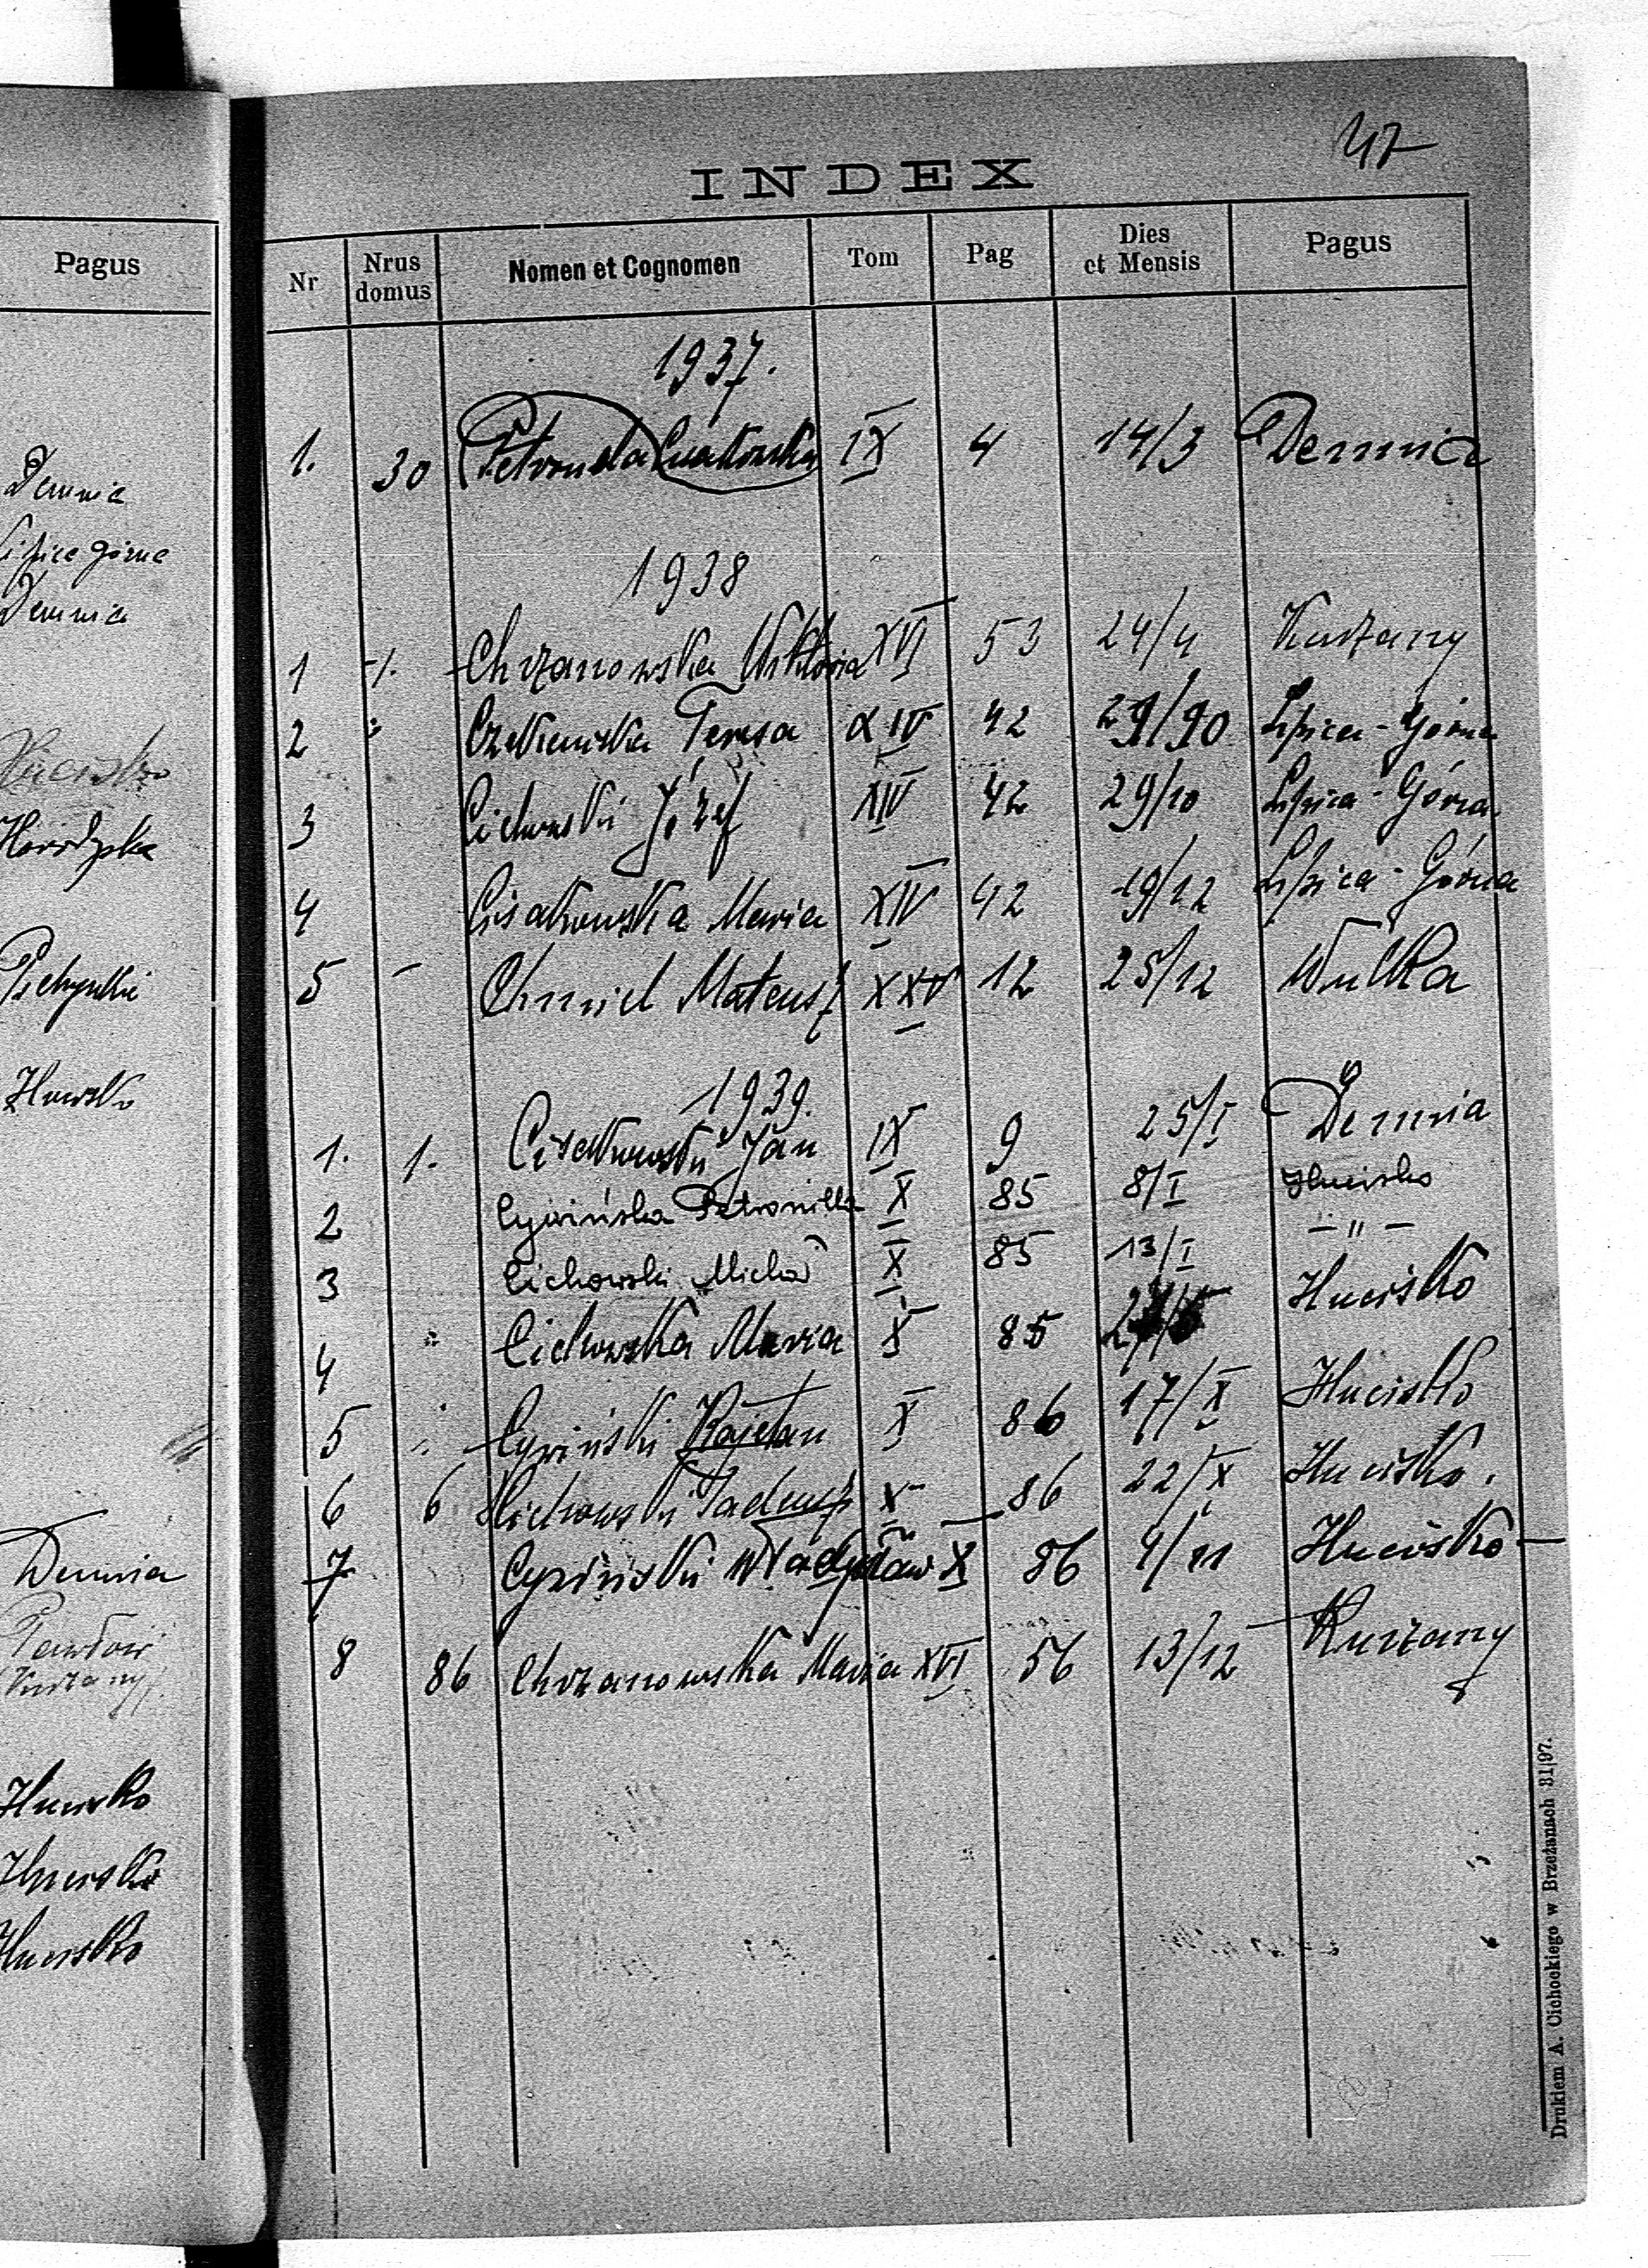 Pagus
Demnia
Lipica górna
Demnia
Hucisko
Hucisko
Demnia
Kurzany
Hucisko
Hucisko
Hucisko
47
INDEX
Nr Nrus domus Nomen et Cognomen Tom Pag Dies et Mensis Pagus
1937.
1. 30 Petronela IX 4 14/3 Demnia
1938
1 -1. Chrzanowska Wiktoria XVI 53 24/4 Kurzany
2 " Teresa XIV 42 29/90 Lipica-Górna
3 Cichowski Józef XIV 42 29/10 Lipica-Górna
4 Cisakowska Maria XIV 42 19/12 Lipica-Górna
5 - Chmiel Mateusz XXV 12 25/12 Wulka
1939.
1. 1. Cisakowski Jan IX 9 25/I Demnia
2 Cywińska Petronilla X 85 8/I Hucisko
3 Cichowski Michał X 85 13/I - " -
4 " Cichowska Maria X 85 Hucisko
5 " Cywiński Kajetan X 86 17/X Hucisko
6 6 Cichowski Tadeusz X 86 22/X Hucisko.
7 Cywiński Władysław X 86 9/11 Hucisko
8 86 Chrzanowska Maria XVI 56 13/12 Kurzany
Drukiem A. Cichockiego w Brzeżanach 31|97.